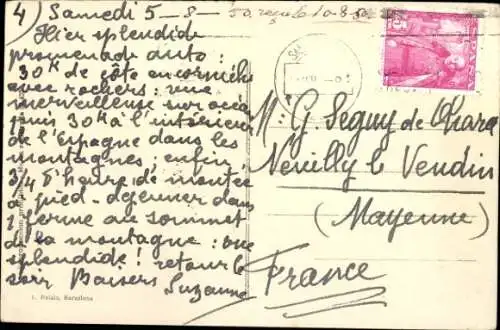 4) Samedi 5-8-50. reçu le 10-8-50
Hier splendide
promenade auto:
30K de côte en corniche
avec rochers: vue
merveilleuse sur océan
puis 30K à l'intérieur
de l'Espagne dans les
montagnes; enfin
3/4 d'heure de montée
à pied - déjeuner dans
1 ferme au sommet
de la montagne: vue
splendide! retour le
soir Baisers Suzanne
M. G. Seguy de
Neuilly le Vendin
(Mayenne)
France
L. Roisin, Barcelona